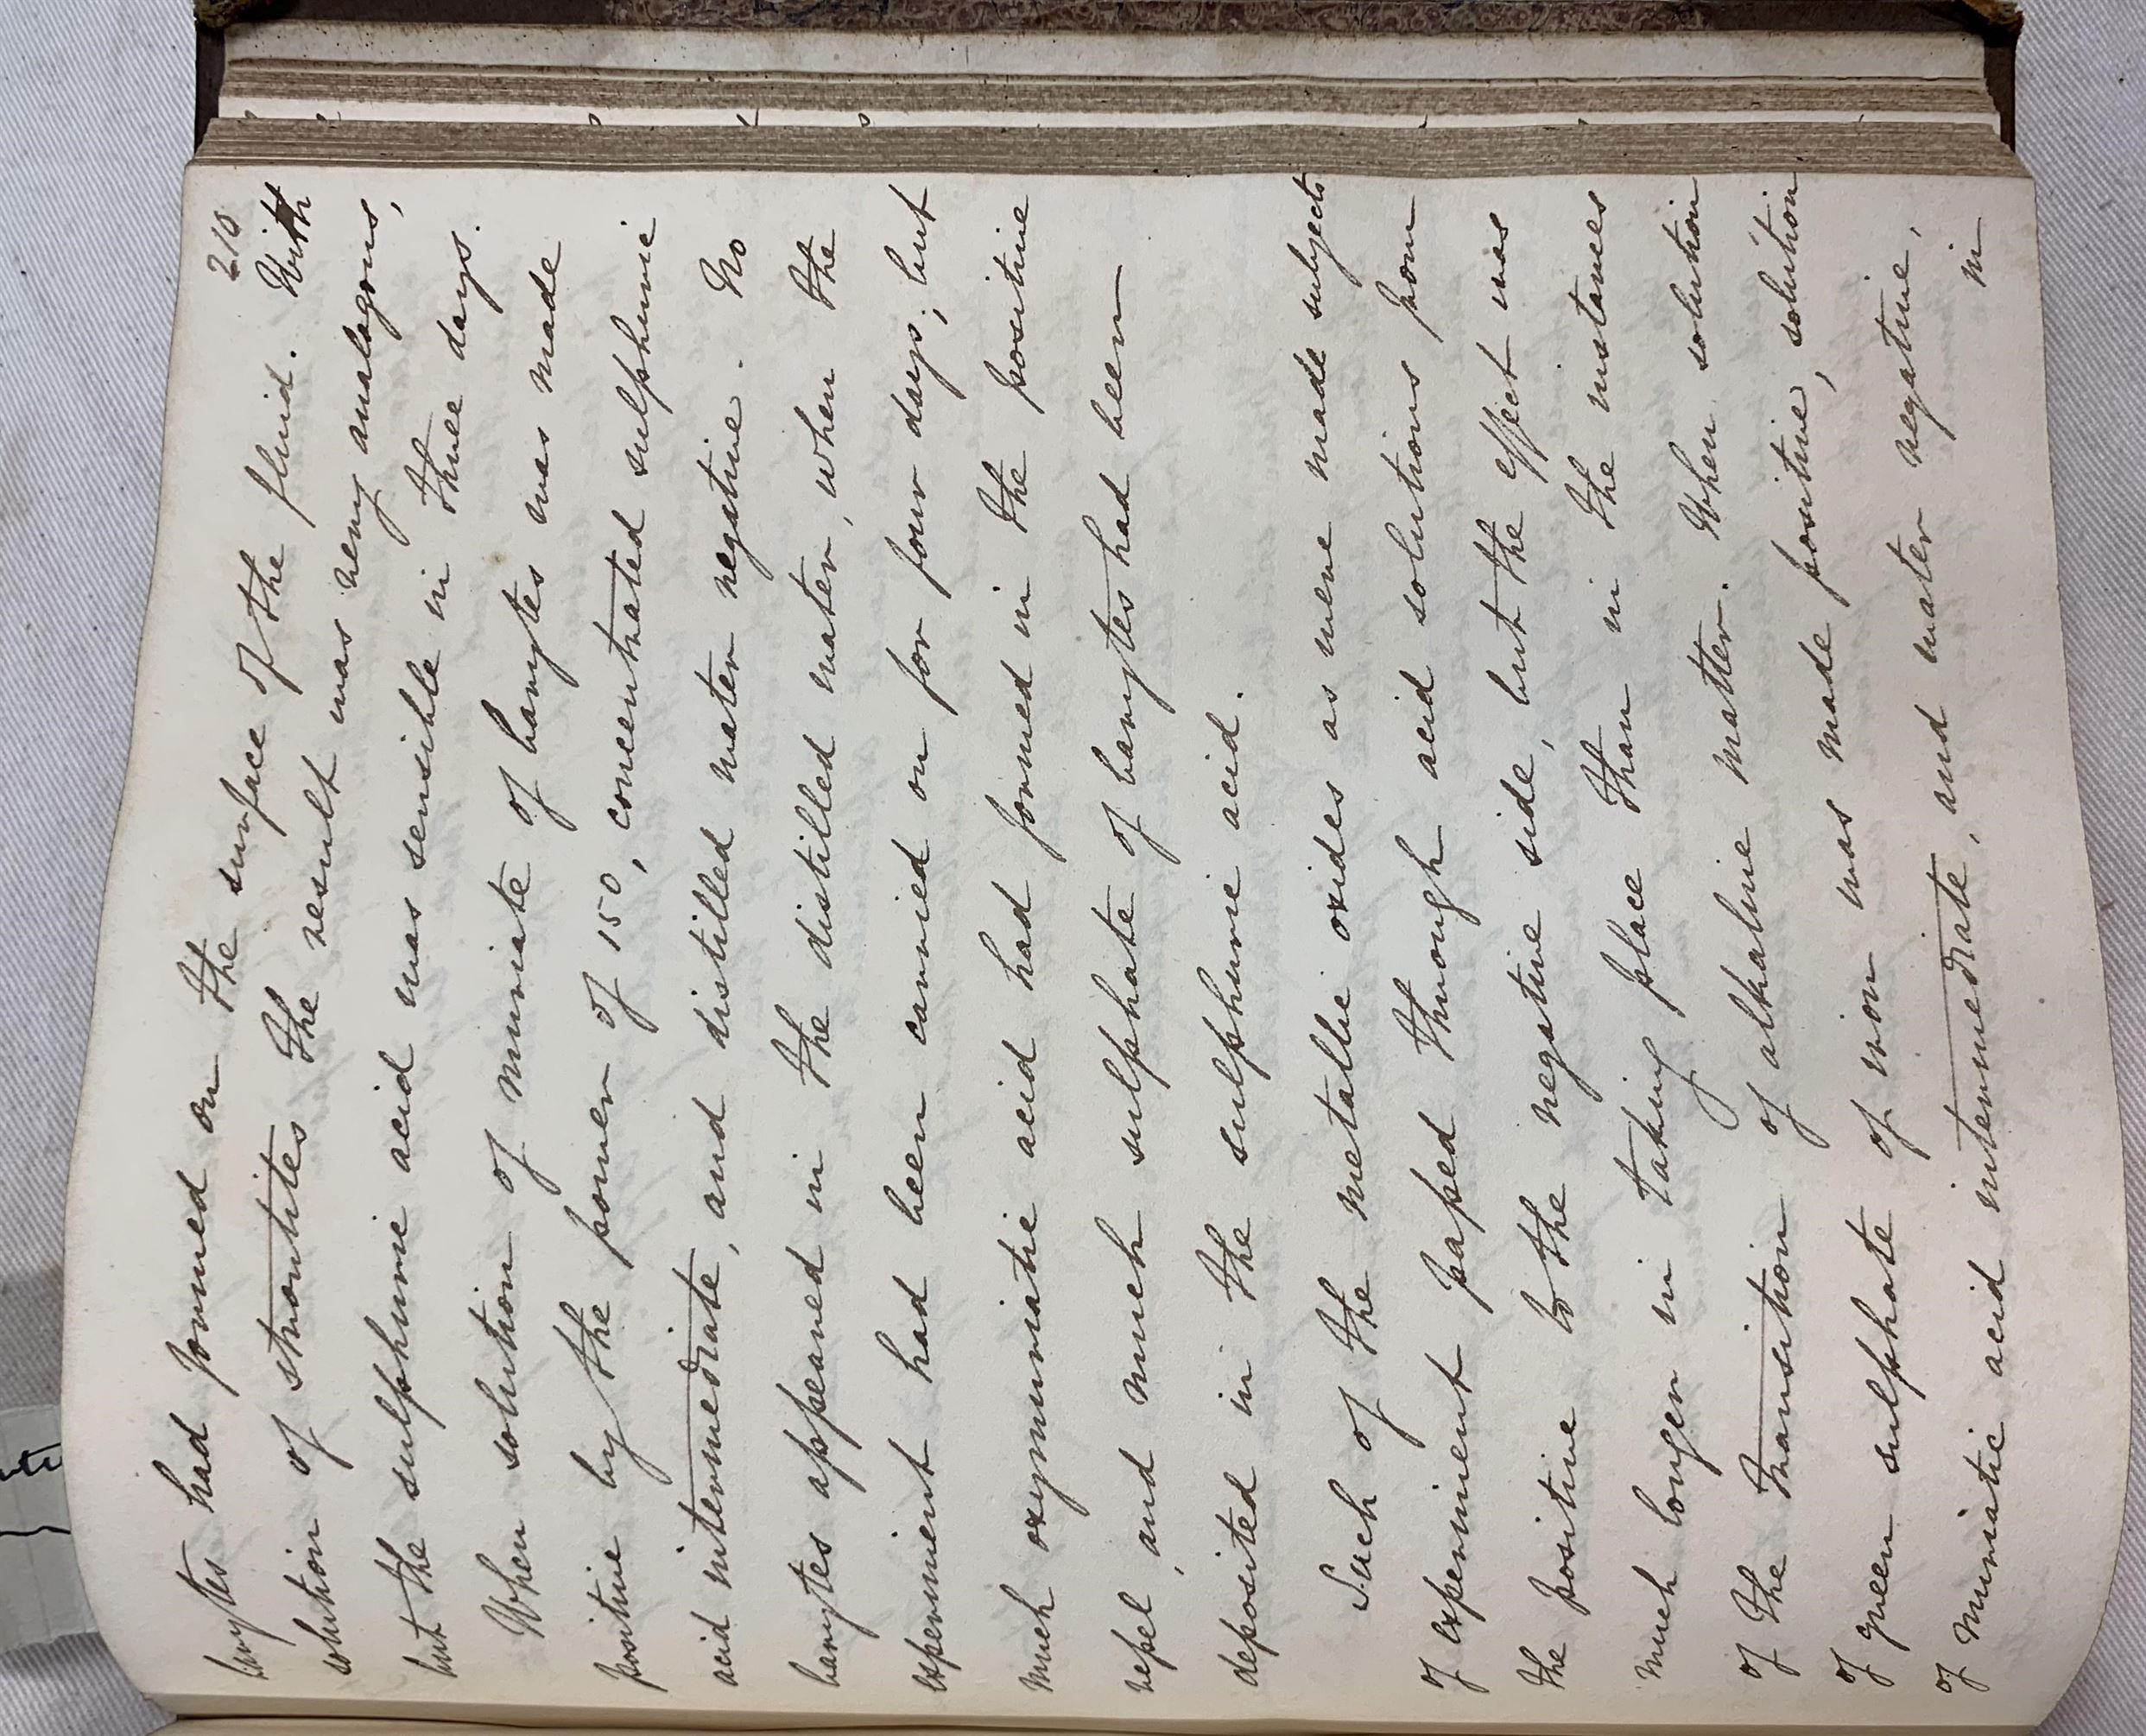 210
barytes had formed on the surface of the fluid. With
solution of strontites the result was very analagous,
but the sulphuric acid was sensible in three days.
When solution of muriate of barytes was made
positive by the power of 150, concentrated sulphuric
acid intermediate, and distilled water negative. No
barytes appeared in the distilled water, when the
experiment had been carried on for four days; but
much oxymuriatic acid had formed in the positive
vessel, and much sulphate of barytes had been
deposited in the sulphuric acid.
Such of the metallic oxides as were made subjects
of experiment passed through acid solutions from
the positive to the negative side, but the effect was
much longer in taking place than in the instances
of the transition of alkaline matter. When solution
of green sulphate of iron was made positive, solution
of muriatic acid intermediate, and water negative,
in